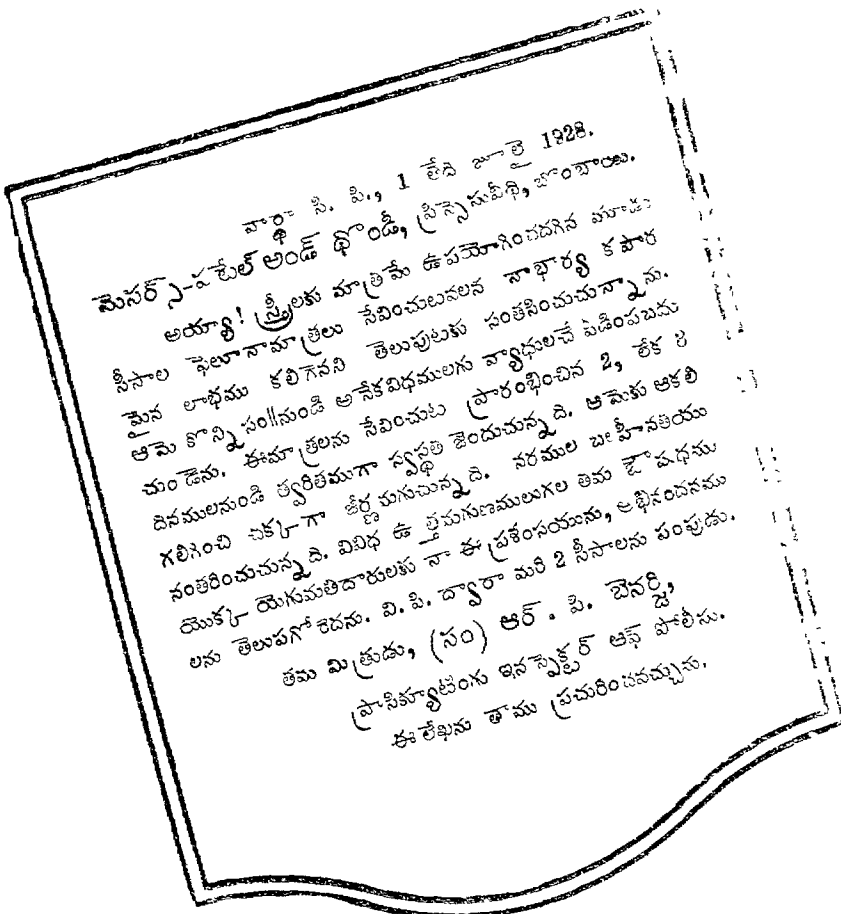 వార్ధా సి. పి., 1 తేది జూలై 1928.
మెసర్స్-పటేల్ అండ్ థొండీ, ప్రిన్సెసువీధి, బొంబాయి.
అయ్యా! స్త్రీలకు మాత్రమే ఉపయోగించదగిన మూడు
సీసాల ఫెలూనామాత్రలు సేవించుటవలన నాభార్య కపార
మైన లాభము కలిగెనని తెలుపుటకు సంతసించుచున్నాను.
ఆమె కొన్ని సం॥నుండి అనేకవిధములగు వ్యాధులచే పీడింపబడు
చుండెను. ఈమాత్రలను సేవించుట ప్రారంభించిన 2, లేక 3
దినములనుండి త్వరితముగా స్వస్థతి జెందుచున్నది. ఆమెకు ఆకలి
గలిగించి చిక్కగా జీర్ణమగుచున్నది. నరముల బలహీనతియు
నంతరించుచున్నది. వివిధ ఉత్తమగుణములుగల తమ ఔషధము
యొక్క యెగుమతిదారులకు నా ఈ ప్రశంసయును, అభినందనము
లను తెలుపగోరెదను. వి. పి. ద్వారా మరి 2 సీసాలను పంపుడు.
తమ మిత్రుడు, (సం) ఆర్. పి. బెనర్జి,
ప్రాసిక్యూటింగు ఇనస్పెక్టర్ ఆఫ్ పోలీసు.
ఈ లేఖను తాము ప్రచురించవచ్చును.